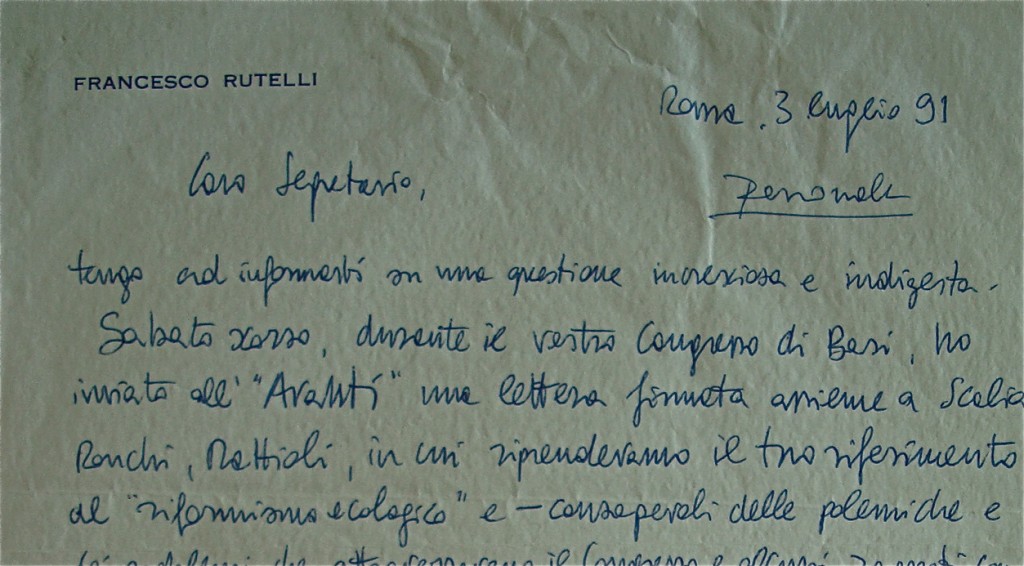 FRANCESCO RUTELLI
Roma, 3 luglio 91
Caro Segretario,
Personale
tengo ad informarti su una questione incresciosa e indigesta.
Sabato scorso, durante il vostro Congresso di Bari, ho
inviato all' "Avanti" una lettera firmata assieme a Scalia
Ronchi, Mattioli, in cui riprendevamo il tuo riferimento
al "riformismo ecologico" e - consapevoli delle polemiche e
il Congresso e